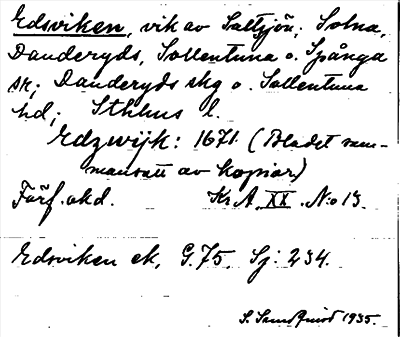 Edsviken, vik av Saltsjön; Solna,
Danderyds, Sollentuna o. Spånga
sk; Danderyds skg o. Sollentuna
hd; Sthlms l.
Edzwijk: 1671 (Bladet sam-
mansatt av kopior)
Förf. okd. Kr. A. XX. No 13.
Edsviken ek. G. 75. Sj: 234.
S. 1935.